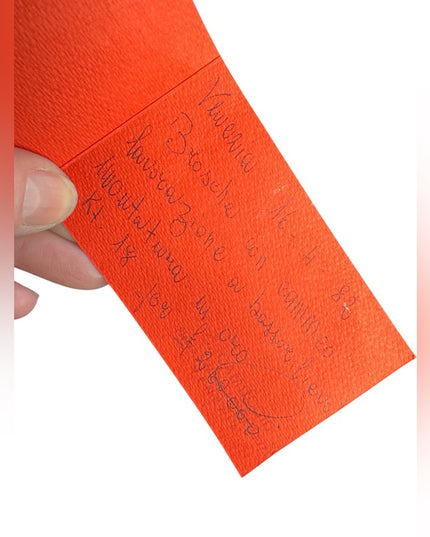 Venezia 16-4-83
Brosche con cammeo
lavorazione a bassorilievo
Montatura in oro
Kt. 18